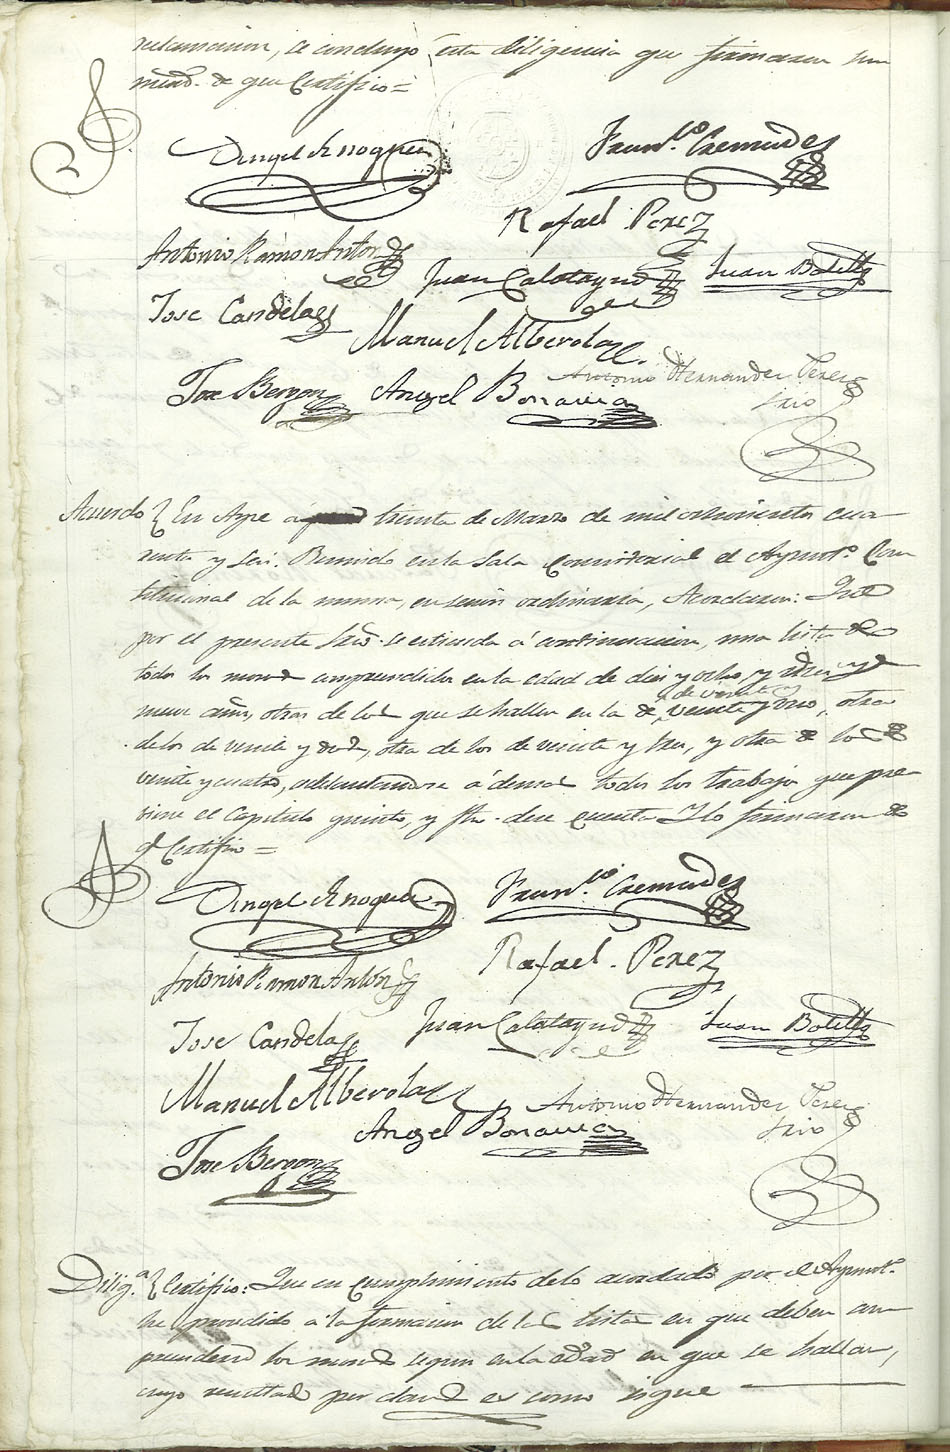 reclamacion, se concluyó esta diligencia que firmaron sus
merd.s de que Certifico=
Angel Asnoguera
Fran.co Cremades
Rafael Perez
Antonio Ramon Anton
Juan Calatayud
Juan Botella
Jose Candela
Manuel Alberola
Antonio Hernandez Perez
Srio
Jose Bergon
Angel Bonavia
Acuerdo } En Aspe á treinta de Marzo de mil ochocientos cua
renta y seis. Reunido en la Sala Consistorial el Ayunt.o Cons
titucional de la misma, en sesion ordinaria, Acordaron: Que
por el presente Srio. se estienda á continuacion, una lista de
todos los mozos comprendidos en la edad de diez y ocho, y diez y
nueve años, otra de los que se hallen en la de, de veinte y veinte y uno, otra
de los de veinte y dos, otra de los de veinte y tres, y otra de los de
veinte y cuatro, adelantandose á demas todos los trabajos que pre
viene el Capitulo quinto, y fho. dese cuenta. Y lo firmaron de
q.e Certifico=
Angel Asnoguera
Fran.co Cremades
Antonio Ramon Antón
Rafael Perez
Jose Candela
Juan Calatayud
Juan Botella
Manuel Alberola
Antonio Hernandez Perez
Srio
Angel Bonavia
Jose Bergon
Dilig.a } Certifico: Que en cumplimiento de lo acordado por el Ayunt.o
he procedido á la formacion de las listas en que deben com
prenderse los mozos segun en la edad en que se hallan,
cuyo resultado por clases es como sigue